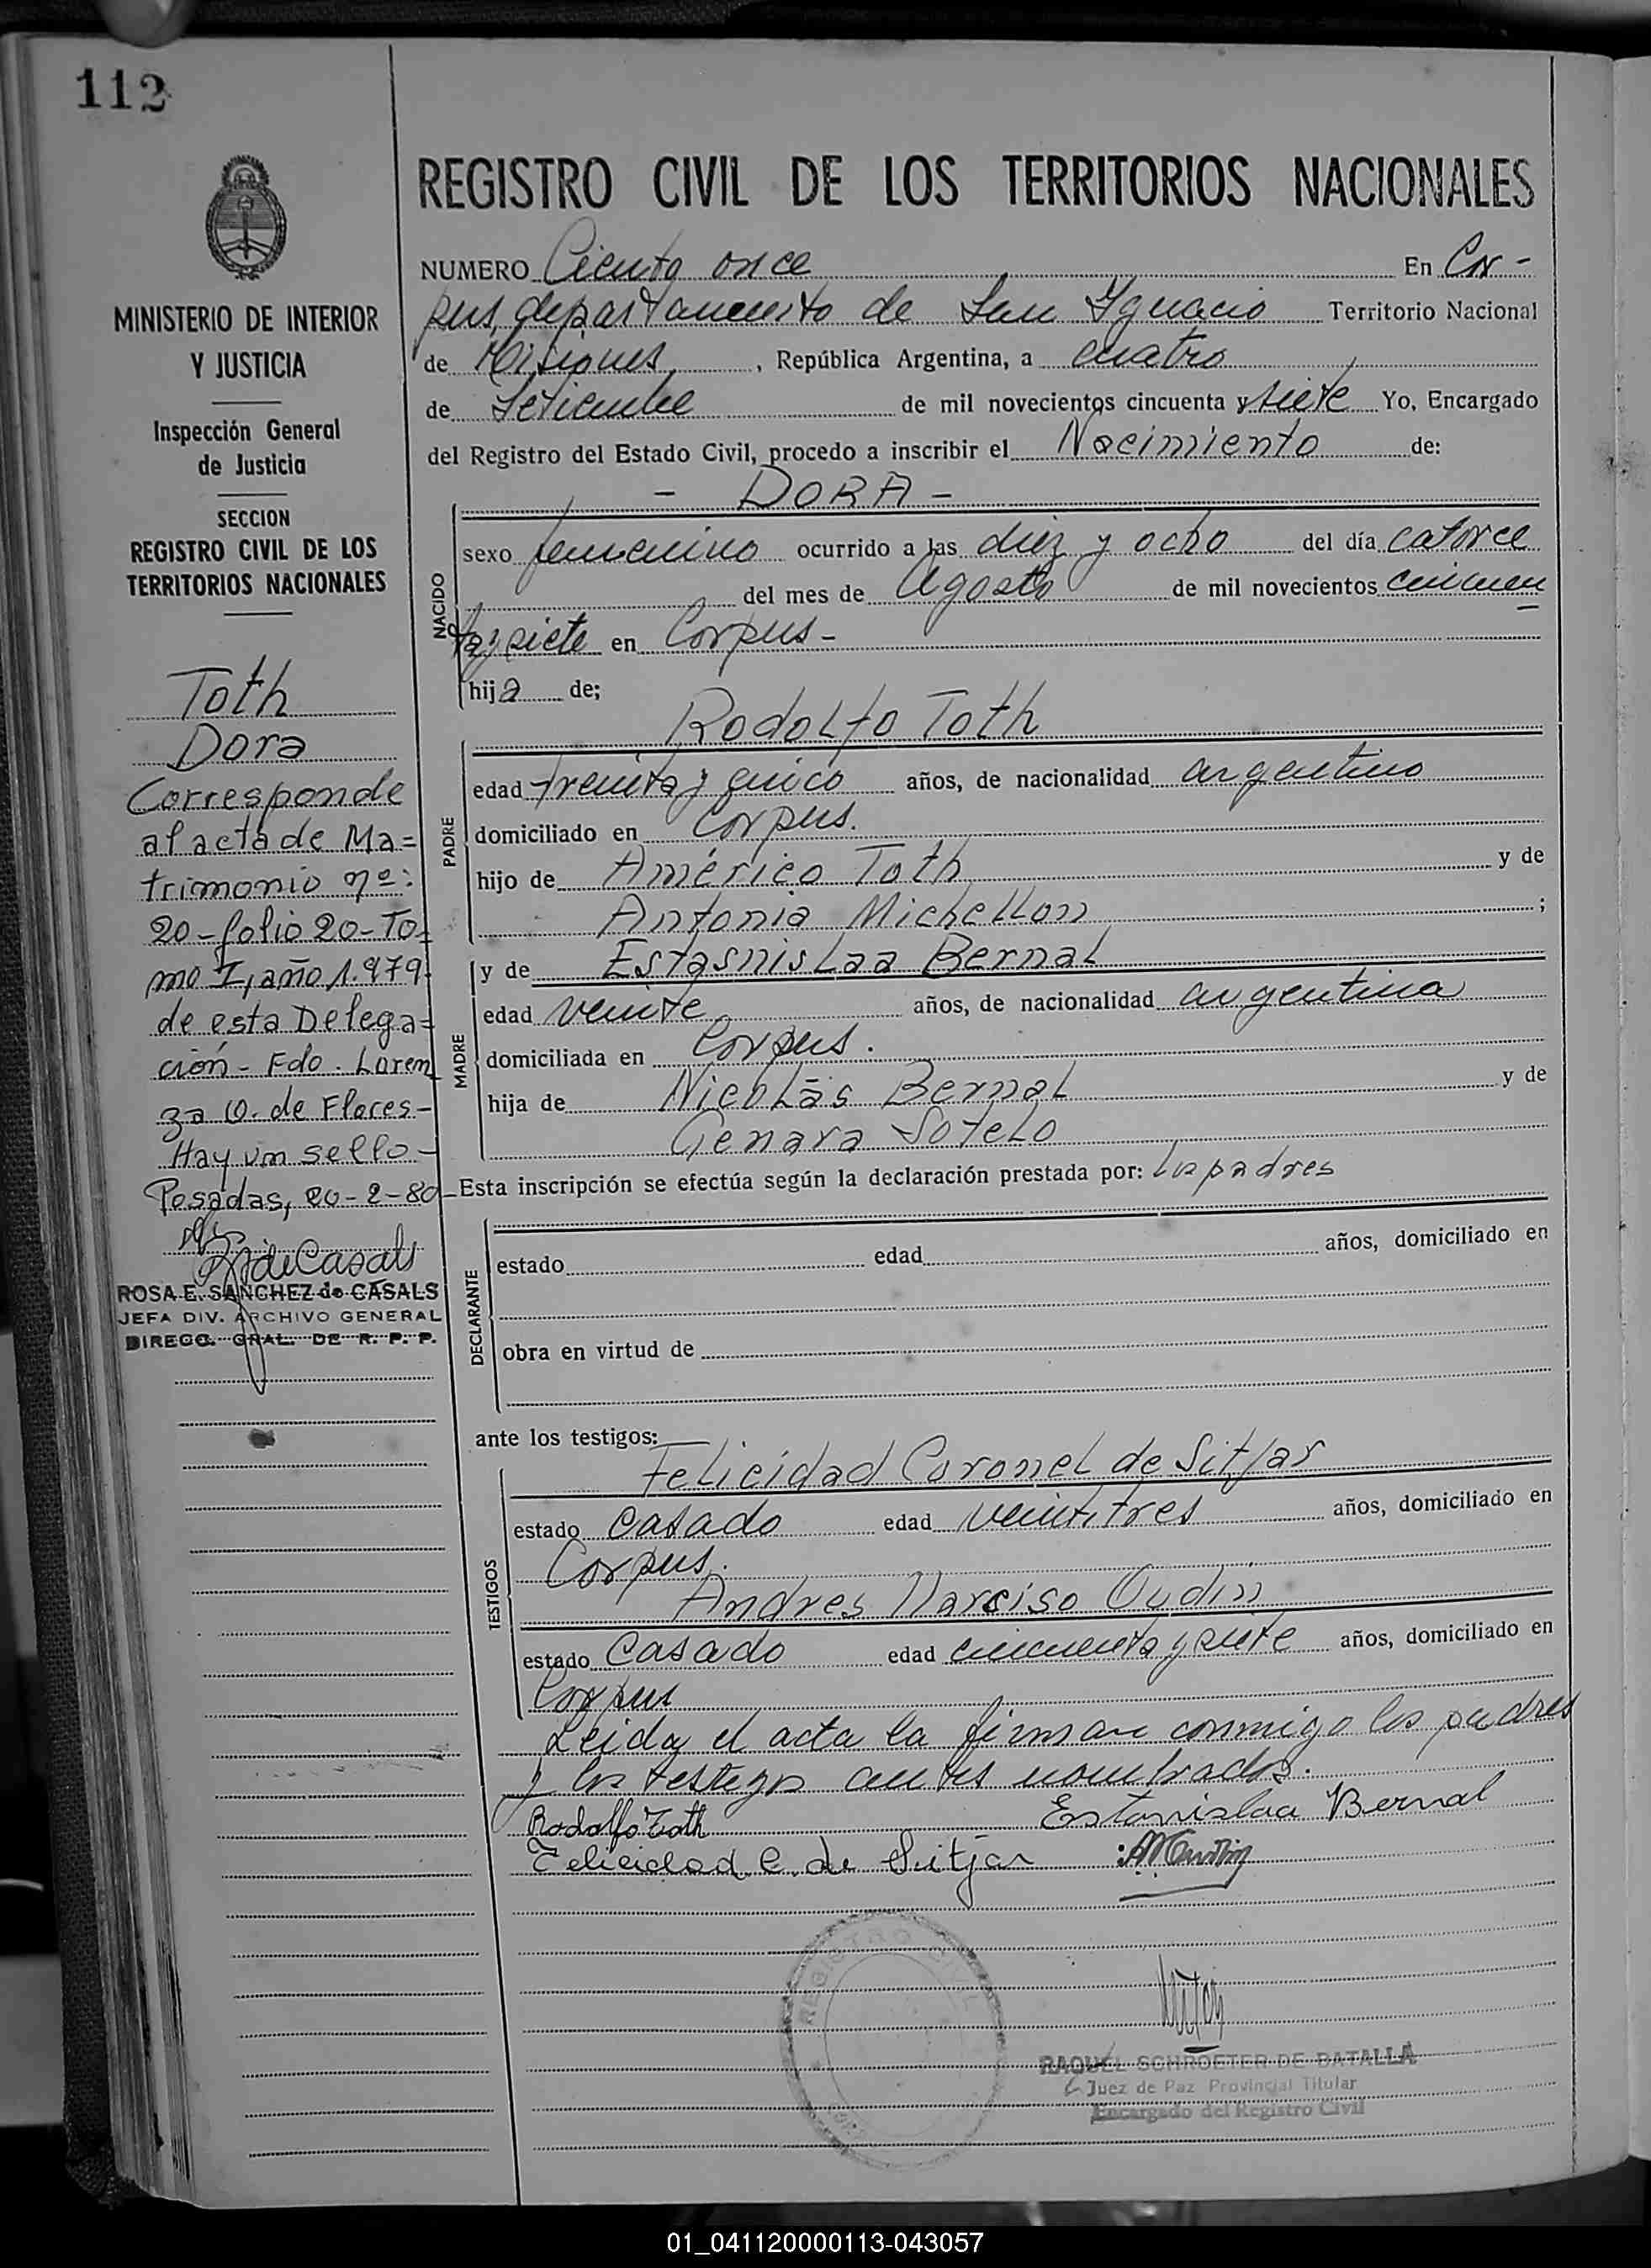 112
REGISTRO CIVIL DE LOS TERRITORIOS NACIONALES
MINISTERIO DE INTERIOR
Y JUSTICIA
Inspección General
de Justicia
SECCION
REGISTRO CIVIL DE LOS
TERRITORIOS NACIONALES
Toth
Dora
Corresponde
al acta de Ma=
trimonio nº:
20-folio 20-To=
mo I, año 1.979-
de esta Delega=
ción - Fdo. Loren
za O. de Flores-
Hay un sello-
Posadas, 20-2-80-
ROSA E. SANCHEZ de CASALS
JEFA DIV. ARCHIVO GENERAL
DIREGG. GRAL. DE R. P. P.
NUMERO Ciento once En Cor-
pus, departamento de San Ygnacio Territorio Nacional
de Misiones, República Argentina, a cuatro
de Setiembre de mil novecientos cincuenta y siete Yo, Encargado
del Registro del Estado Civil, procedo a inscribir el Nacimiento de:
- DORA -
NACIDO
sexo femenino ocurrido a las diez y ocho del día catorce
del mes de Agosto de mil novecientos cincuen
ta y siete en Corpus-
hija de;
Rodolfo Toth
PADRE
edad treinta y cinco años, de nacionalidad argentino
domiciliado en Corpus.
hijo de Américo Toth y de
Antonia Michellon ;
y de Estasnislaa Bernal
MADRE
edad veinte años, de nacionalidad argentina
domiciliada en Corpus.
hija de Nicolás Bernal y de
Genara Sotelo
Esta inscripción se efectúa según la declaración prestada por: los padres
DECLARANTE
estado edad años, domiciliado en
obra en virtud de
ante los testigos:
Felicidad Coronel de Sitjar
TESTIGOS
estado casado edad veintitres años, domiciliado en
Corpus.
Andres Narciso Oudin
estado Casado edad cincuenta y siete años, domiciliado en
Corpus
Leida el acta la firman conmigo los padres
y los testigos antes nombrados.
Rodolfo Toth Estanislaa Bernal
Felicidad C. de Sitjar
REGISTRO CIVIL
RAQUEL SCHROETER DE BATALLA
Juez de Paz Provincial Titular
Encargado del Registro Civil
01_041120000113-043057